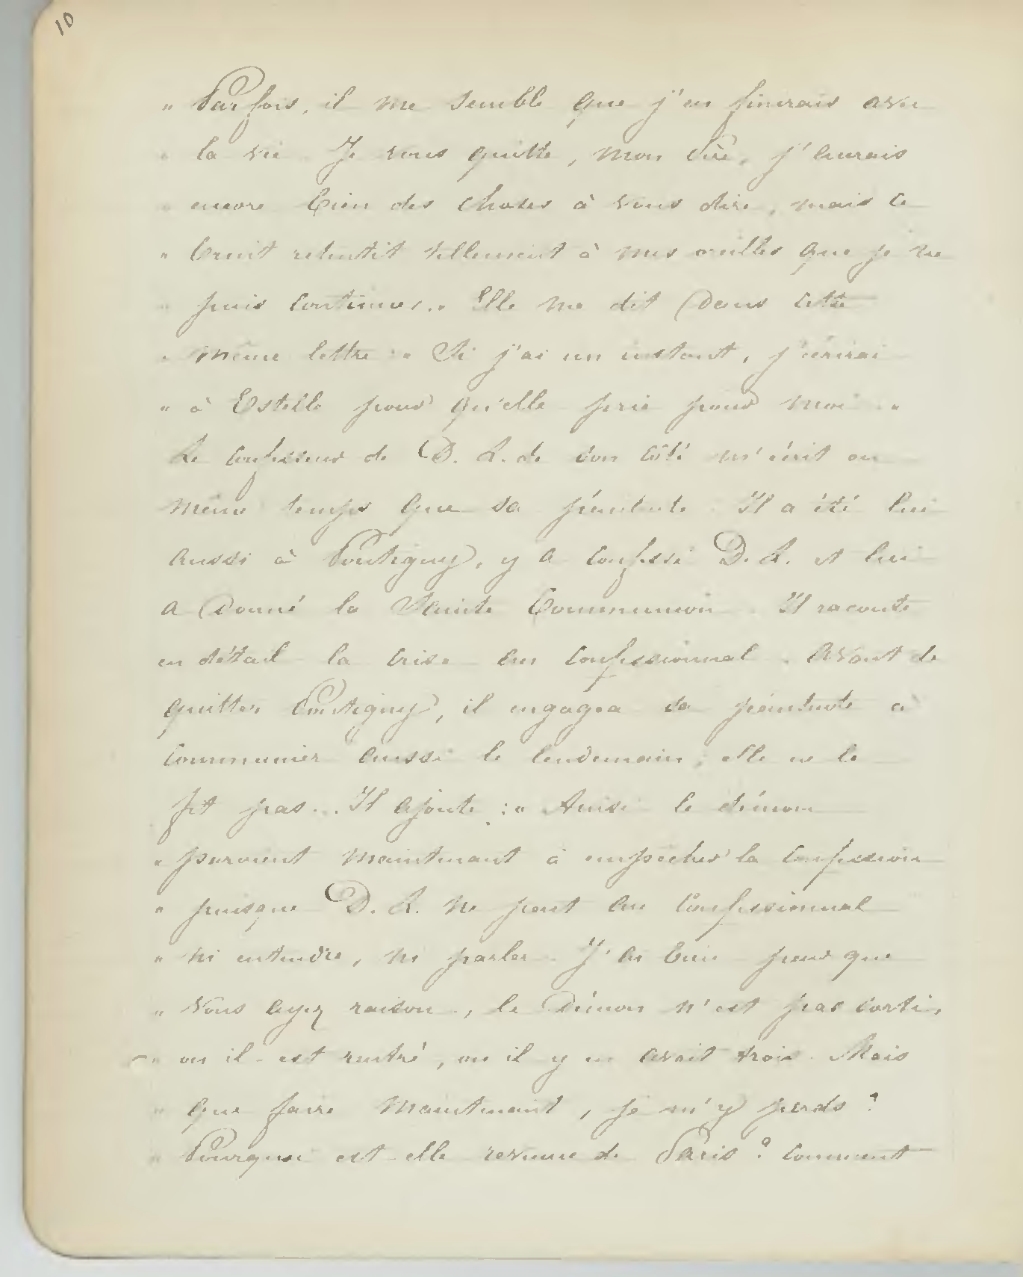 10
" Parfois, il me semble que j'en finirais avec
" la vie. Je vous quitte, mon Père, j'aurais
" encore bien des choses à vous dire, mais ce
" bruit retentit tellement à mes oreilles que je ne
" puis continuer.. Elle me dit dans cette
" même lettre : " Si j'ai un instant, j'écrirai
" à Estelle pour qu'elle prie pour moi . "
Le confesseur de D. L. de son côté m'écrit en
même temps que sa pénitente. Il a été lui
aussi à Pontigny, y a confessé D. L. et lui
a donné la Sainte Communion. Il raconte
en détail la crise au confessionnal. Avant de
quitter Pontigny, il engagea sa pénitente à
communier aussi le lendemain ; elle ne le
fit pas.. Il ajoute : " Ainsi le démon
" parvient maintenant à empêcher la confession
" puisque D. L. ne peut au confessionnal
" ni entendre, ni parler. J'ai bien peur que
" vous ayez raison, le démon n'est pas sorti,
" ou il est rentré, ou il y en avait trois. Mais
" que faire maintenant, je m'y perds ?
" Pourquoi est-elle revenue de Paris ? Comment